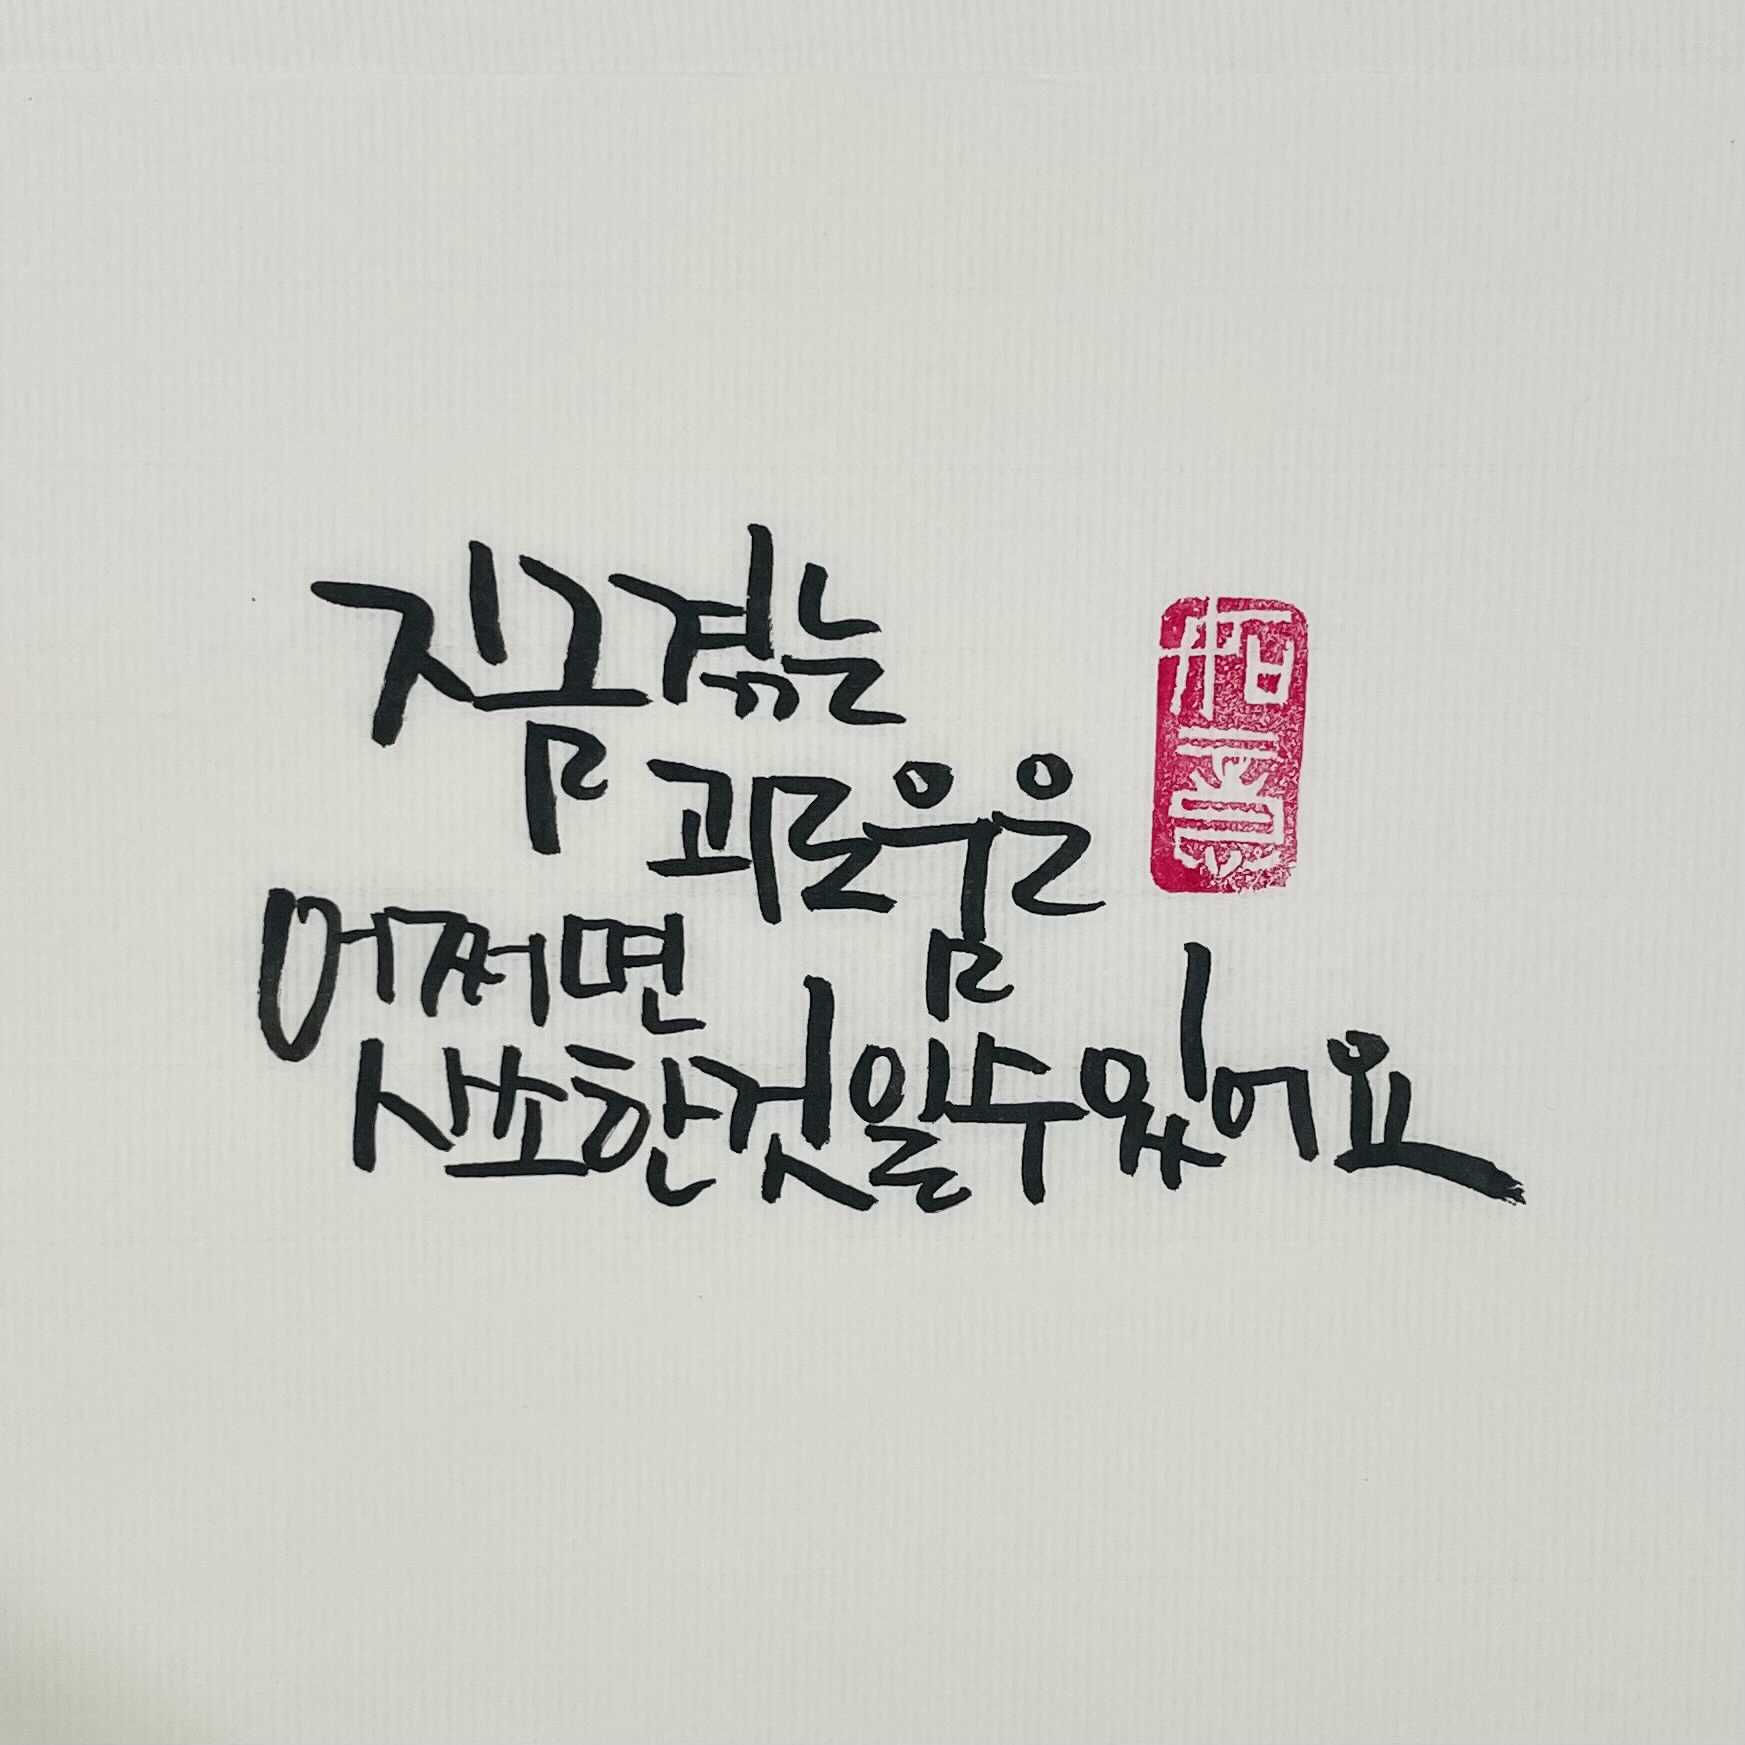 지금 겪는
괴로움은
어쩌면
사소한 것일 수 있어요